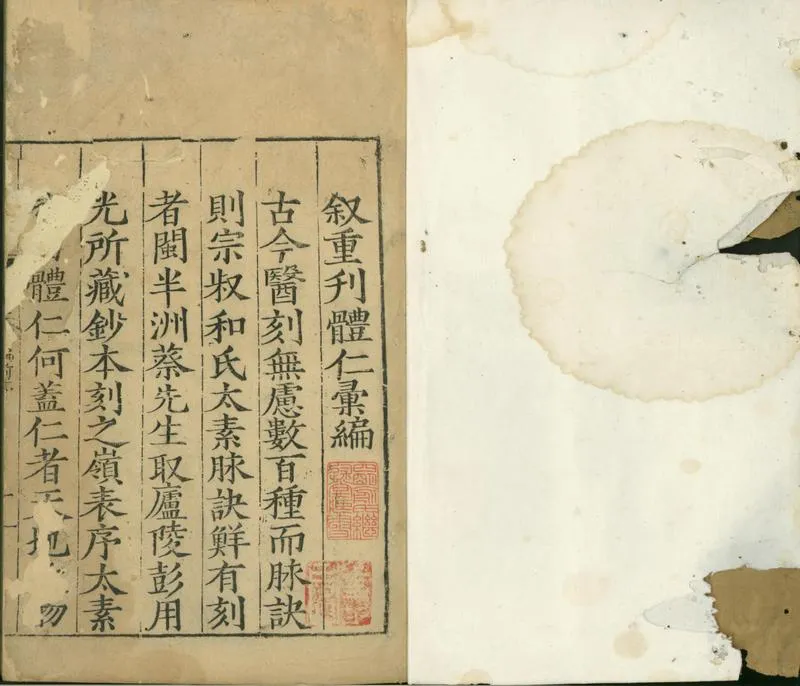 叙重刊體仁彙編
古今醫刻無慮數百種而脉訣
則宗叔和氏太素脉訣鮮有刻
者閩半洲蔡先生取廬陵彭用
光所藏鈔本刻之嶺表序太素
體仁何蓋仁者天地物